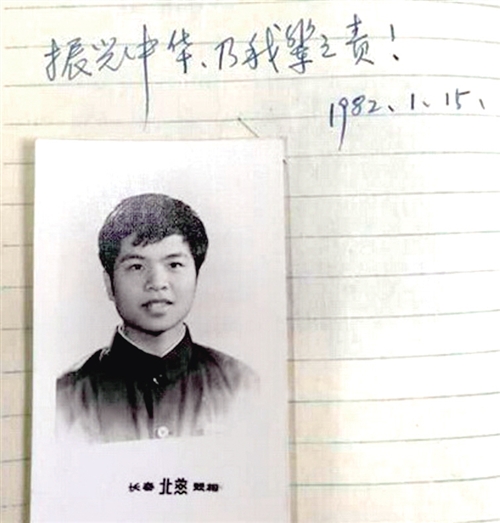 振兴中华、乃我辈之责!
1982.1.15.
长春 北燕 照相